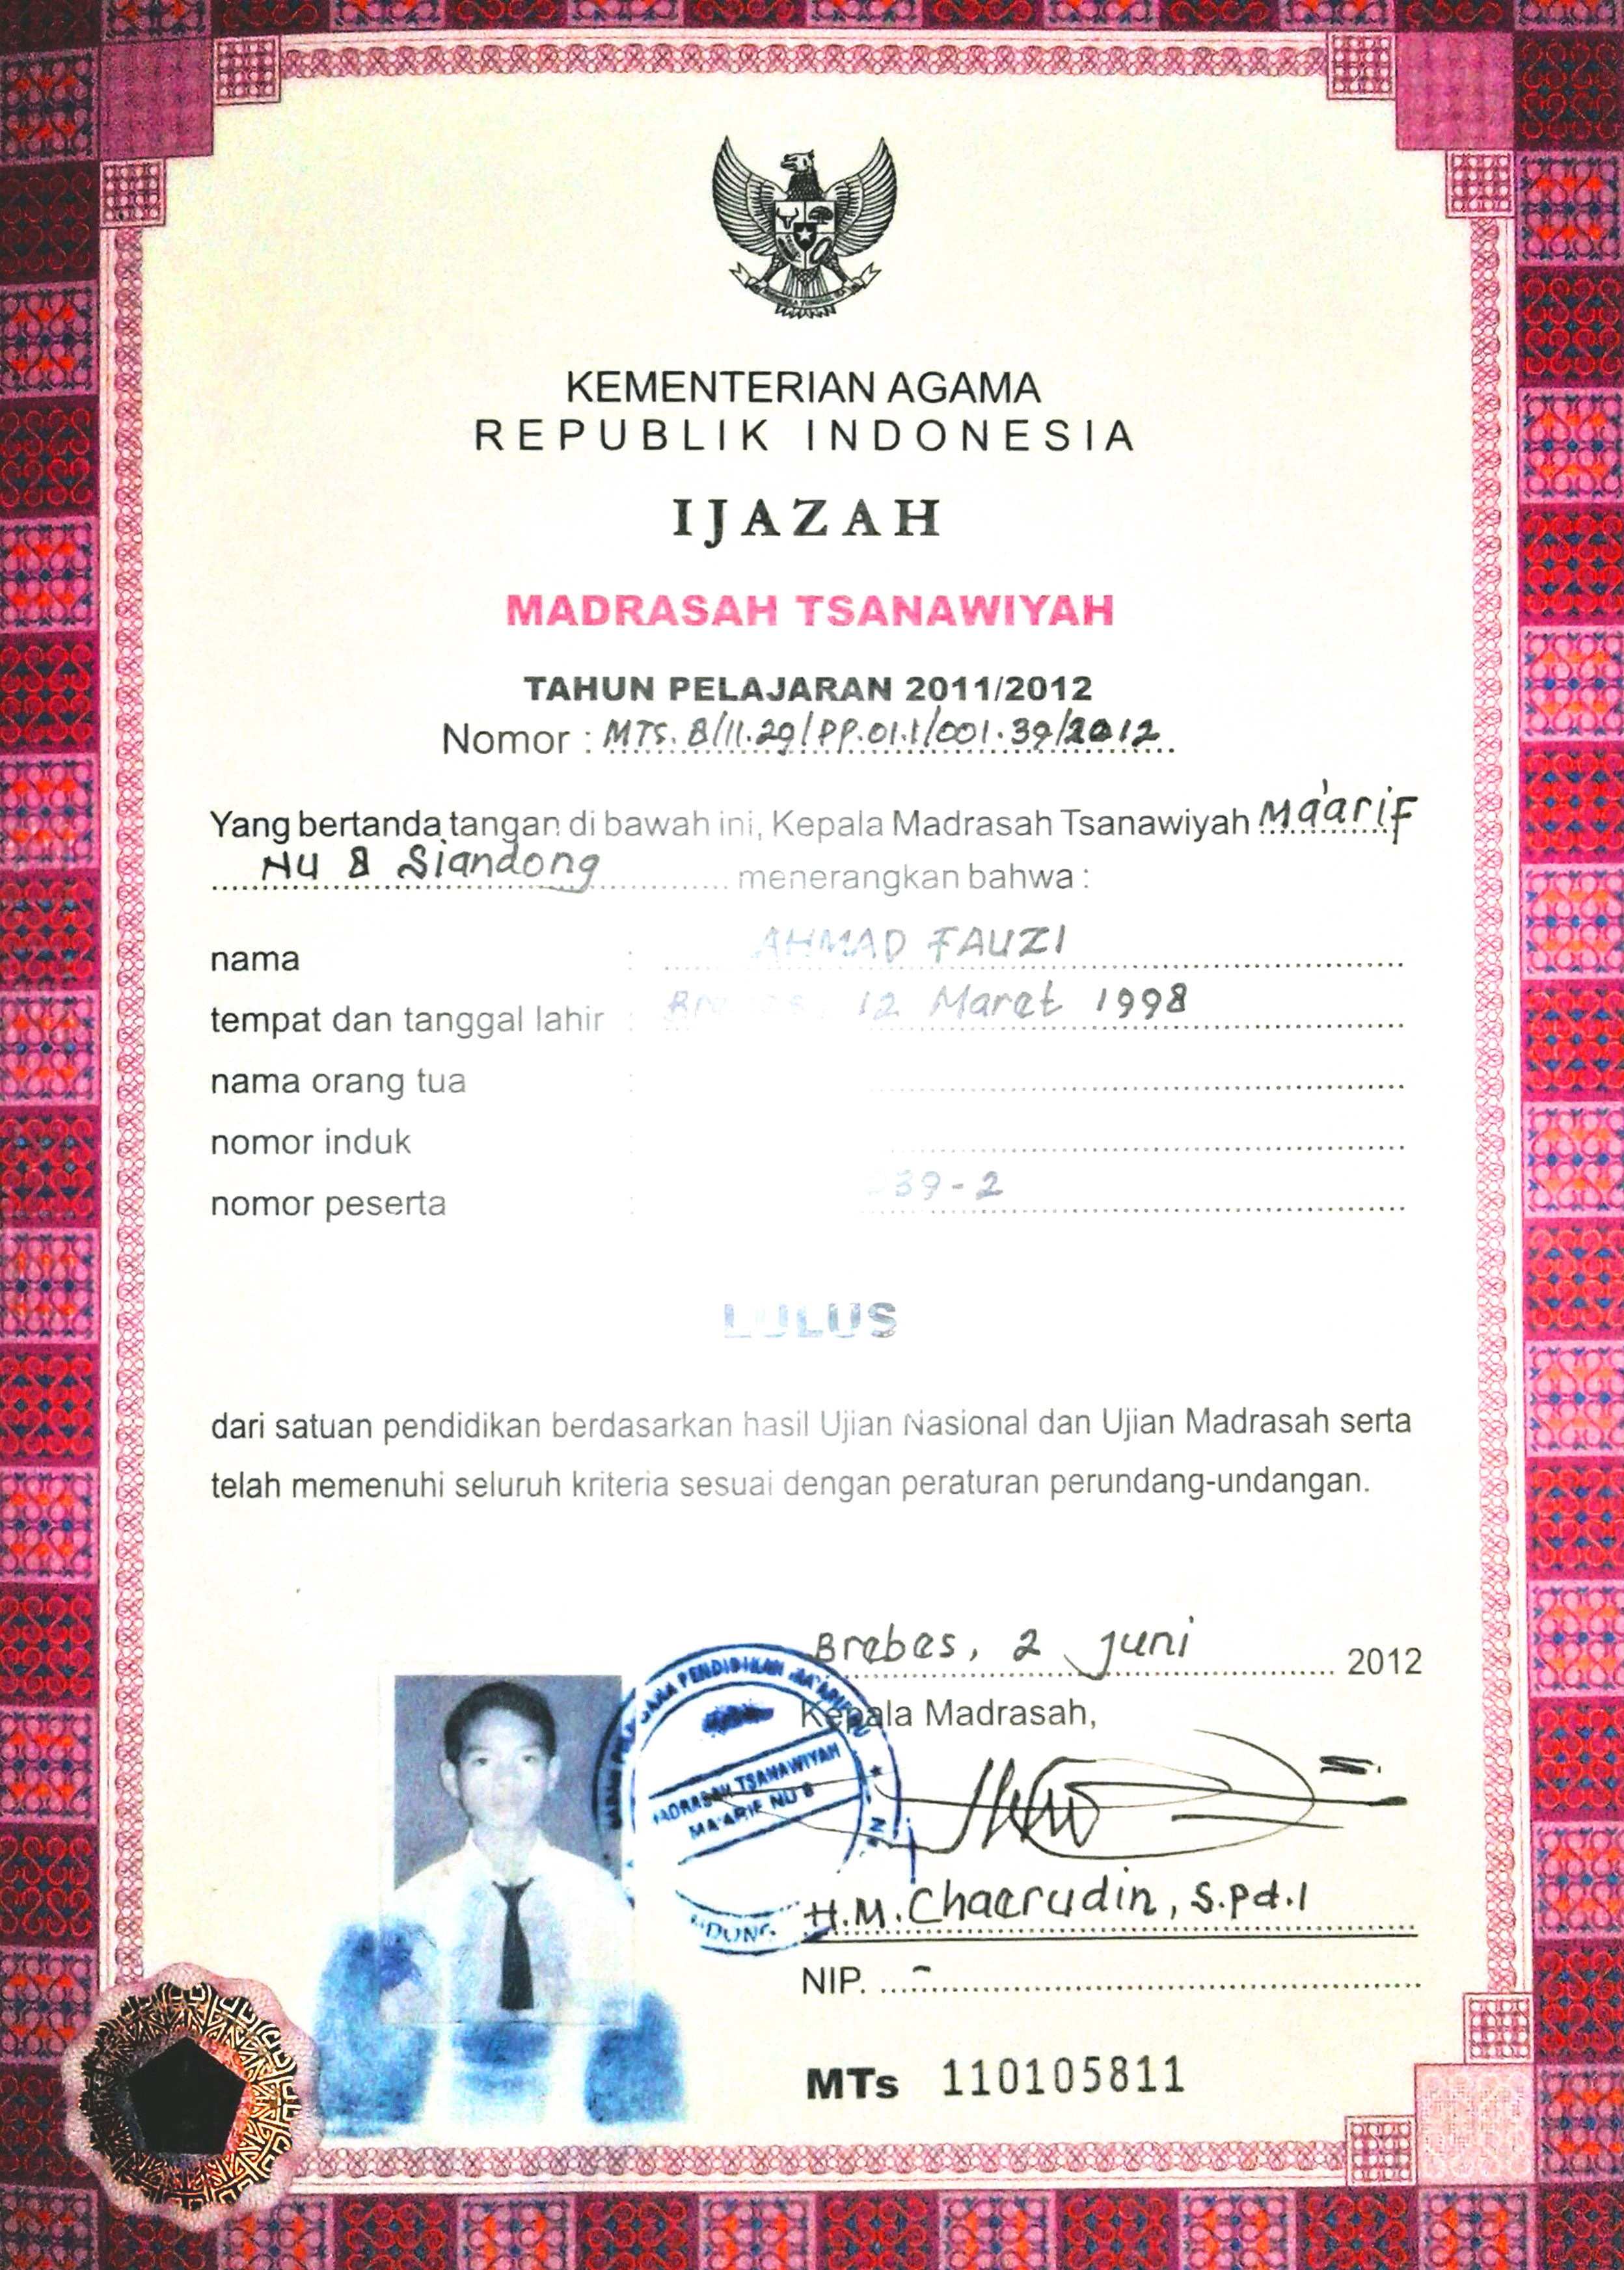 KEMENTERIAN AGAMA
REPUBLIK INDONESIA
IJAZAH
MADRASAH TSANAWIYAH
TAHUN PELAJARAN 2011/2012
Nomor : MTs. 8/11.29/PP.01.1/001.39/2012
Yang bertanda tangan di bawah ini, Kepala Madrasah Tsanawiyah Ma'arif
NU 8 Siandong menerangkan bahwa :
nama : AHMAD FAUZI
tempat dan tanggal lahir : 12 Maret 1998
nama orang tua :
nomor induk :
nomor peserta : 39-2
LULUS
dari satuan pendidikan berdasarkan hasil Ujian Nasional dan Ujian Madrasah serta
telah memenuhi seluruh kriteria sesuai dengan peraturan perundang-undangan.
Brebes, 2 Juni 2012
Kepala Madrasah,
PENDIDIKAN MA'ARIF NU
MADRASAH TSANAWIYAH
MA'ARIF NU 8
H.M. Chaerudin, S.Pd.I
NIP. -
MTs 110105811